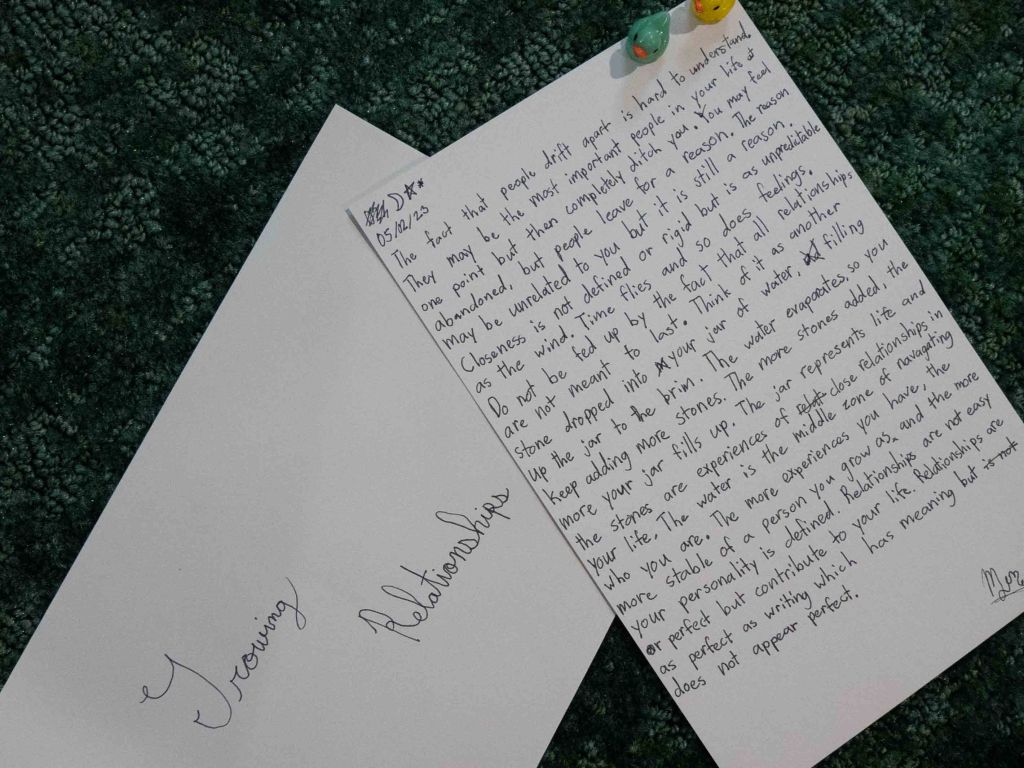 Growing
Relationships
D
05/12/23
The fact that people drift apart is hard to understand.
They may be the most important people in your life at
one point but then completely ditch you. You may feel
abandoned, but people leave for a reason. The reason
may be unrelated to you but it is still a reason.
Closeness is not defined or rigid but is as unpredictable
as the wind. Time flies and so does feelings.
Do not be fed up by the fact that all relationships
are not meant to last. Think of it as another
stone dropped into your jar of water, filling
up the jar to the brim. The water evaporates, so you
keep adding more stones. The more stones added, the
more your jar fills up. The jar represents life and
the stones are experiences of close relationships in
your life. The water is the middle zone of navagating
who you are. The more experiences you have, the
more stable of a person you grow as and the more
your personality is defined. Relationships are not easy
or perfect but contribute to your life. Relationships are
as perfect as writing which has meaning but is not
does not appear perfect.